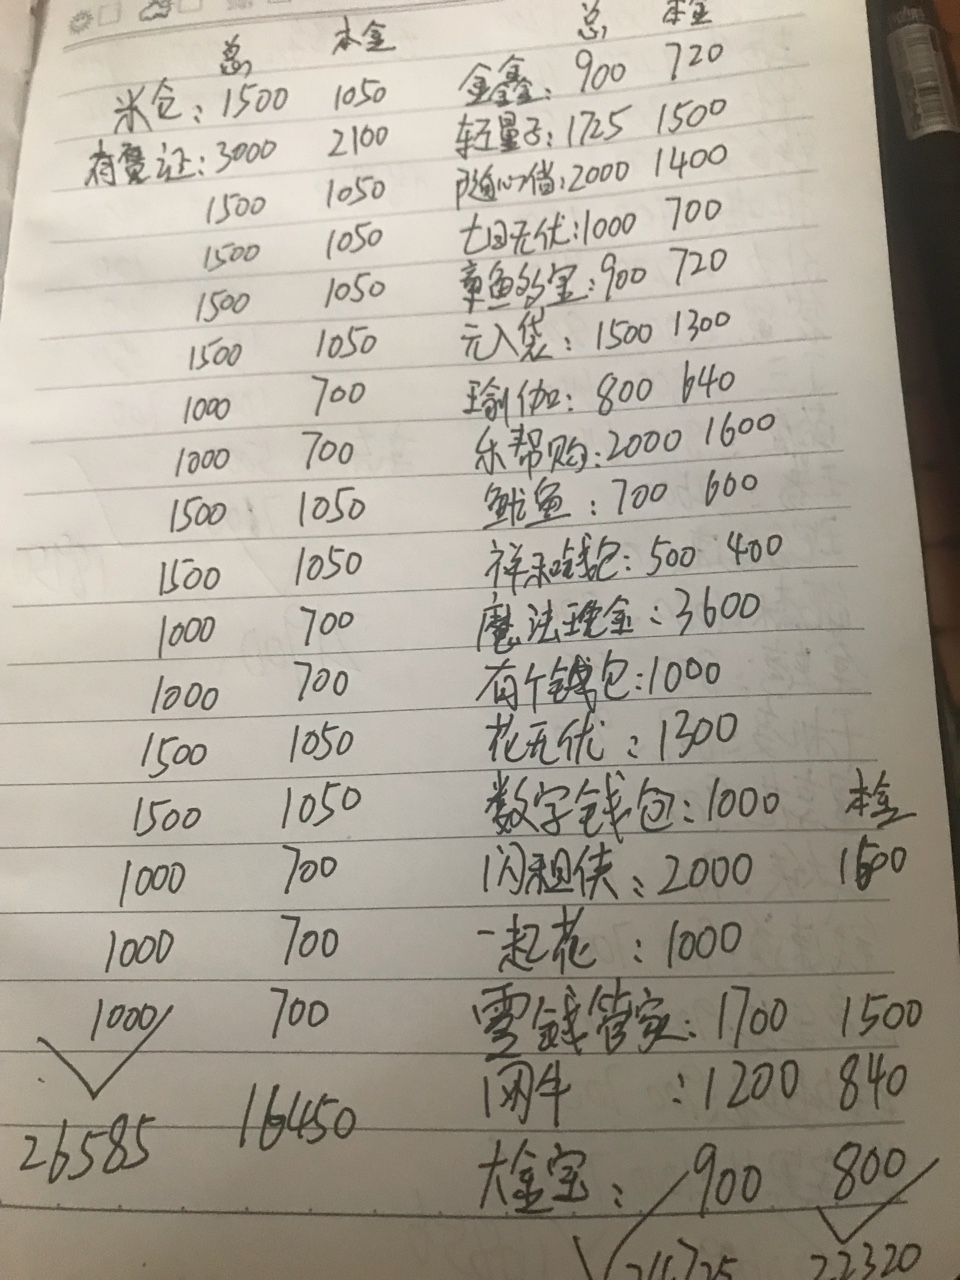 总 本金 总 本金
米仓：1500 1050 金鑫：900 720
有魔证：3000 2100 轻量子：1725 1500
1500 1050 随心借：2000 1400
1500 1050 七日无忧：1000 700
1500 1050 章鱼多宝：900 720
1500 1050 元入袋：1500 1300
1000 700 瑜伽：800 640
1000 700 乐帮购：2000 1600
1500 1050 鱿鱼：700 600
1500 1050 祥和钱包：500 400
1000 700 魔法现金：3600
1000 700 有个钱包：1000
1500 1050 花无忧：1300
1500 1050 数字钱包：1000 本金
1000 700 闪租侠：2000 1600
1000 700 一起花：1000
1000 700 零钱管家：1700 1500
26585 16450 网牛：1200 840
大金宝：900 800
22320